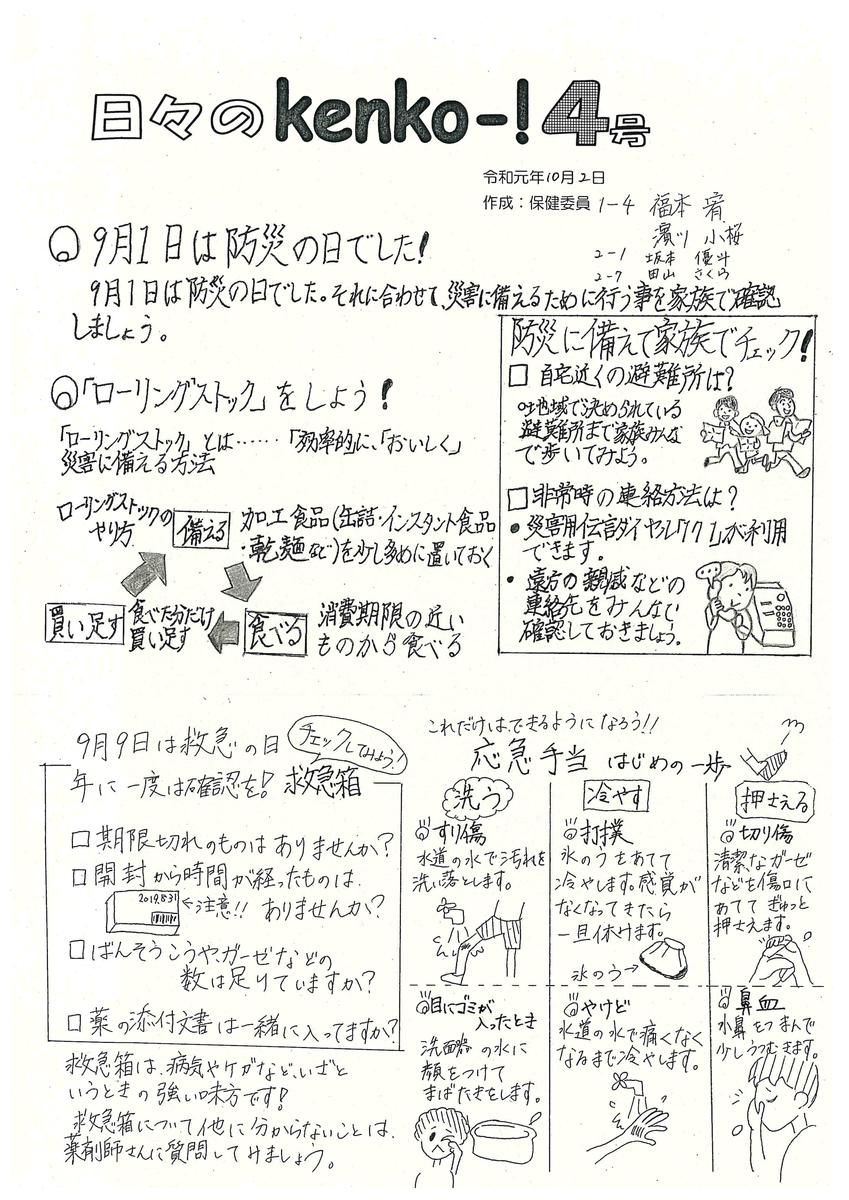 日々のkenko-!4号
令和元年10月2日
作成：保健委員 1-4 福本 宥
濱リ 小桜
2-1 坂本 優斗
2-7 田山 さくら
9月1日は防災の日でした!
9月1日は防災の日でした。それに合わせて、災害に備えるために行う事を家族で確認
しましょう。
「ローリングストック」をしよう!
「ローリングストック」とは……「効率的に、「おいしく」
災害に備える方法
ローリングストックの
やり方
備える
加工食品(缶詰・インスタント食品
・乾麺など)を少し多めに置いておく
食べる
消費期限の近い
ものから食べる
買い足す
食べた分だけ
買い足す
防災に備えて家族でチェック!
□ 自宅近くの避難所は?
○地域で決められている
避難所まで家族みんな
で歩いてみよう。
□非常時の連絡方法は?
・災害用伝言ダイヤル171が利用
できます。
・遠方の親戚などの
連絡先をみんなで
確認しておきましょう。
9月9日は救急の日
チェックしてみよう!
年に一度は確認を! 救急箱
□期限切れのものはありませんか?
□開封から時間が経ったものは
2019.8.31
←注意!! ありませんか?
□ばんそうこうやガーゼなどの
数は足りていますか?
□薬の添付文書は一緒に入ってますか?
救急箱は、病気やケガなど、いざと
いうときの強い味方です!
救急箱について他に分からないことは、
薬剤師さんに質問してみましょう。
これだけは、できるようになろう!!
応急手当 はじめの一歩
洗う
すり傷
水道の水で汚れを
洗い落とします。
目にゴミが
入ったとき
洗面器の水に
顔をつけて
まばたきをします。
冷やす
打撲
氷のうをあてて
冷やします。感覚が
なくなってきたら
一旦休けます。
氷のう→
やけど
水道の水で痛くなく
なるまで冷やします。
押さえる
切り傷
清潔なガーゼ
などを傷口に
あててぎゅっと
押さえます。
鼻血
水鼻をつまんで
少しうつむきます。